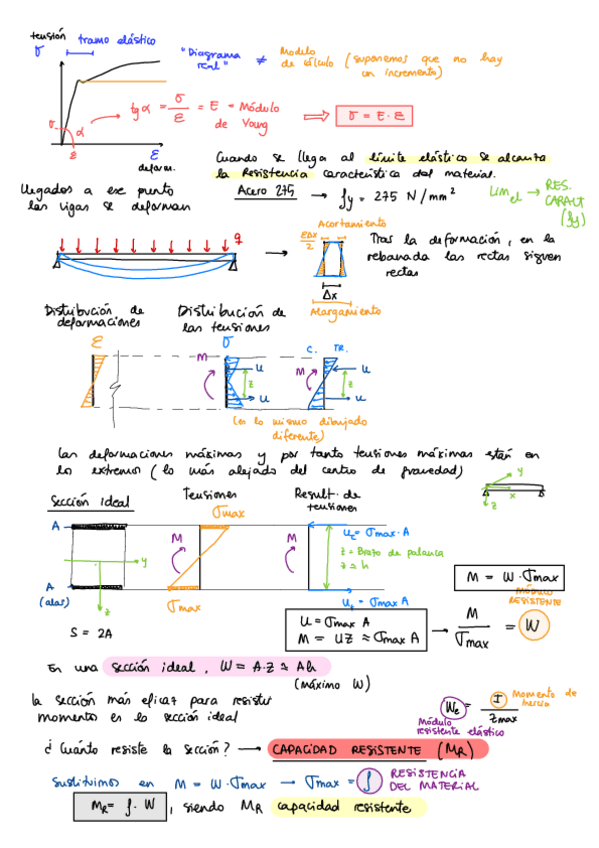 tensión
σ
tramo elástico
"Diagrama real" ≠ Modulo de cálculo (suponemos que no hay un incremento)
tgα = σ/ε = E = Módulo de Young ⇒ σ = E·ε
σ
α
ε
ε
deform.
Cuando se llega al límite elástico se alcanza
la Resistencia característica del material.
Llegados a ese punto
las vigas se deforman
Acero 275 → fy = 275 N/mm²
Lim el → RES. CARACT (fy)
q
Acortamiento
εΔx/2
Δx
Alargamiento
Tras la deformación, en la
rebanada las rectas siguen
rectas
Distribución de
deformaciones
Distribución de
las tensiones
ε
σ
C. TR.
M
U
z
U
M
U
z
U
(es lo mismo dibujado
diferente)
Las deformaciones máximas y por tanto tensiones máximas están en
los extremos (lo más alejado del centro de gravedad)
y
x
z
Sección ideal
Tensiones
Result. de
tensiones
A
A
(alas)
y
z
S = 2A
σmax
M
σmax
M
Uc = σmax·A
z = Brazo de palanca
z ≈ h
Ut = σmax A
M = W·σmax
U = σmax A
M = Uz ≈ σmax A
→ M/σmax = W
MÓDULO
RESISTENTE
En una sección ideal, W = A·z ≈ Ah
(máximo W)
la sección más eficaz para resistir
momento es la sección ideal
We = I/zmax
Momento de
Inercia
Módulo
resistente elástico
¿Cuánto resiste la sección? → CAPACIDAD RESISTENTE (MR)
Sustituimos en M = W·σmax → σmax = f
RESISTENCIA
DEL MATERIAL
MR = f·W, siendo MR capacidad resistente